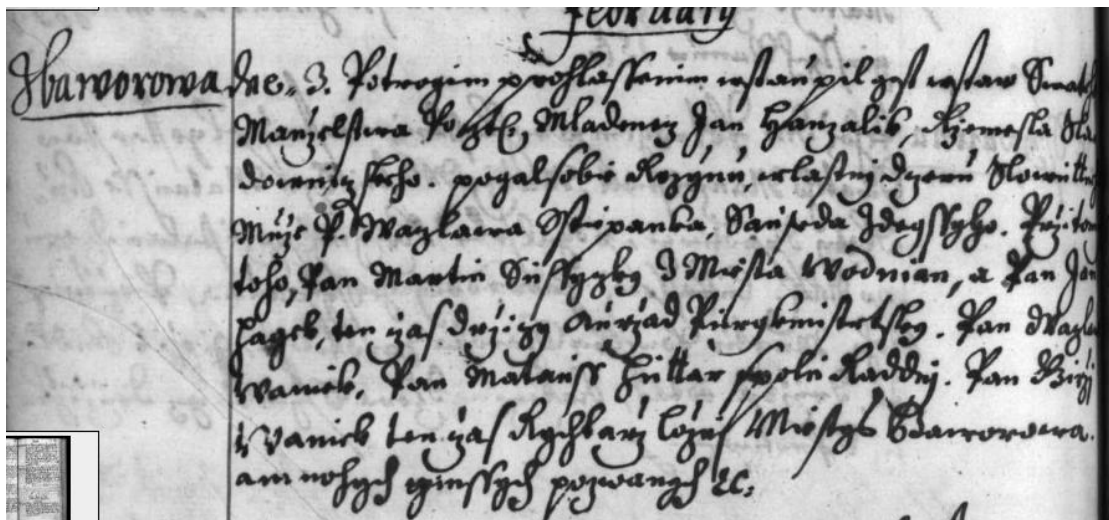 February
Zbaworowa dne. 3. Potrogim prohlassenim wstaupil gest wstaw Swateh
Manzelstwa Pocztl: Mladenecz Jan Hanzalik, Rzemesla Sla
downiczkeho. pogal sobie Rozynu, wlastnj dczeru Slowutne
Muze P. Waczlawa Sstiepanka, Sauseda Zdegssyho. Przitom
toho, Pan Martin Sussyczky Z Miesta Wodnian, a Pan Jan
Hagek, ten czas drzicy Aurzad Purgkmistrtsky. Pan Waczla
Waniek, Pan Matauss Huttar spolu Raddnj. Pan Girzj
Waniek ten czas Rychtarz toho Miestys Bawworowa.
a mnohych ginssych pozwanych &c: